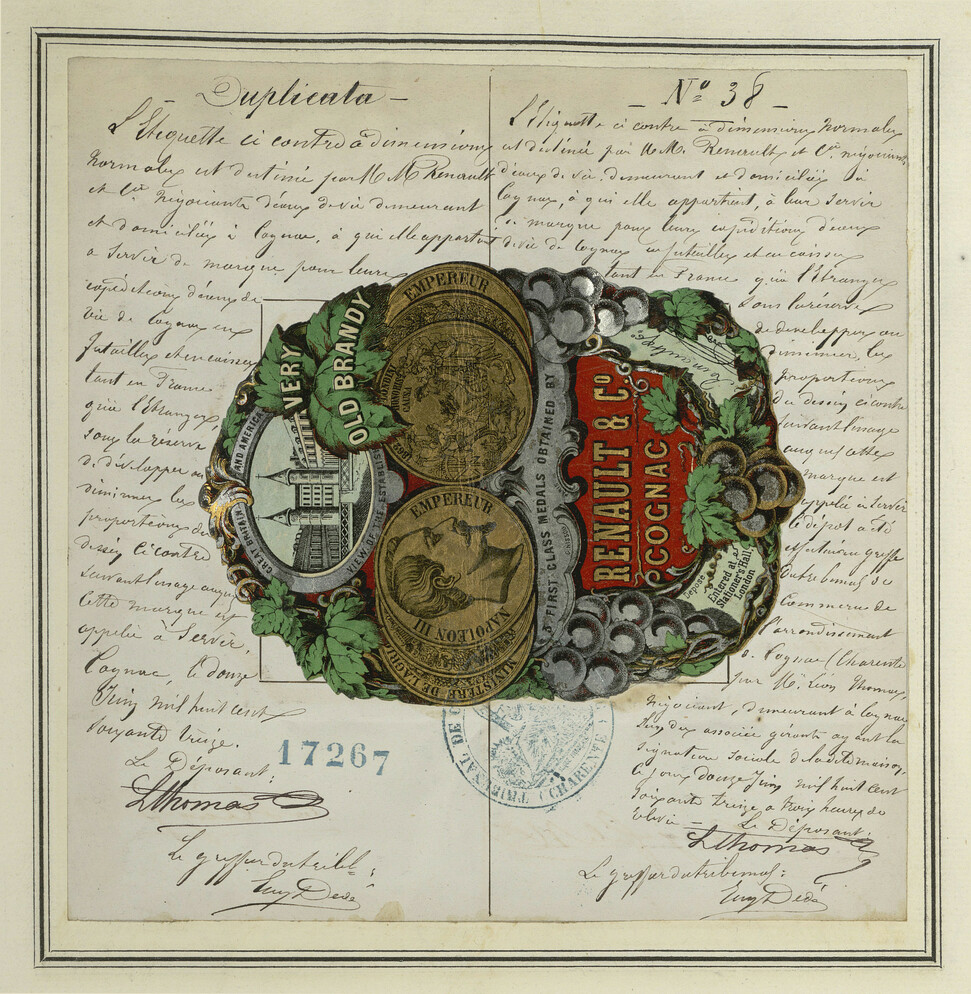 Duplicata –
L'Etiquette ci contre à dimensions
Normales est destinée par M M Renault
et Cie Négociants d'eaux de vie demeurant
et domiciliés à Cognac, à qui elle appartient
a servir de marque pour leurs
expéditions d'eaux de
vie de Cognac en
futailles et en caisses
tant en France
qu'à l'étranger,
sous la réserve
de développer ou
diminuer les
proportions du
dessin ci contre
suivant l'usage auquel
cette marque est
appelée à servir.
Cognac, le douze
Juin mil huit cent
soixante treize.
Le Déposant:
LThomas
Le greffier du tribl:
Eug Dedé
17267
– No 38 –
L'étiquette ci contre à dimensions normales
est destinée par M M. Renault et Cie négociants
d'eaux de vie, demeurant et domiciliés à
Cognac, à qui elle appartient, à leur servir
de marque pour leurs expéditions d'eaux
de vie de Cognac en futailles et en caisses
tant en France qu'à l'étranger
sous la réserve
de développer ou
diminuer, les
proportions
du dessin ci contre
suivant l'usage
auquel cette
marque est
appelée à servir
Le dépôt a été
effectué au greffe
du tribunal de
Commerce de
l'arrondissement
de Cognac (Charente
par Mr Léon Thomas,
négociant, demeurant à Cognac
l'un des associés gérants ayant la
signature sociale de la dite maison,
ce jour douze Juin mil huit cent
soixante treize a trois heures de
– Le Déposant:
LThomas
Le greffier du tribunal:
Eug Dedé
VERY
OLD BRANDY
GREAT BRITAIN AND AMERICA
VIEW OF THE ESTABLIS
EMPEREUR
LONDINI
HONORIS
CAUSA
1862
EMPEREUR
NAPOLEON III
MINISTERE DE L'AGRIC
3 FIRST CLASS MEDALS OBTAINED BY
RENAULT & Co
COGNAC
Déposé
Entered at
Stationer's Hall
London
TRIBUNAL DE C
CHARENTE